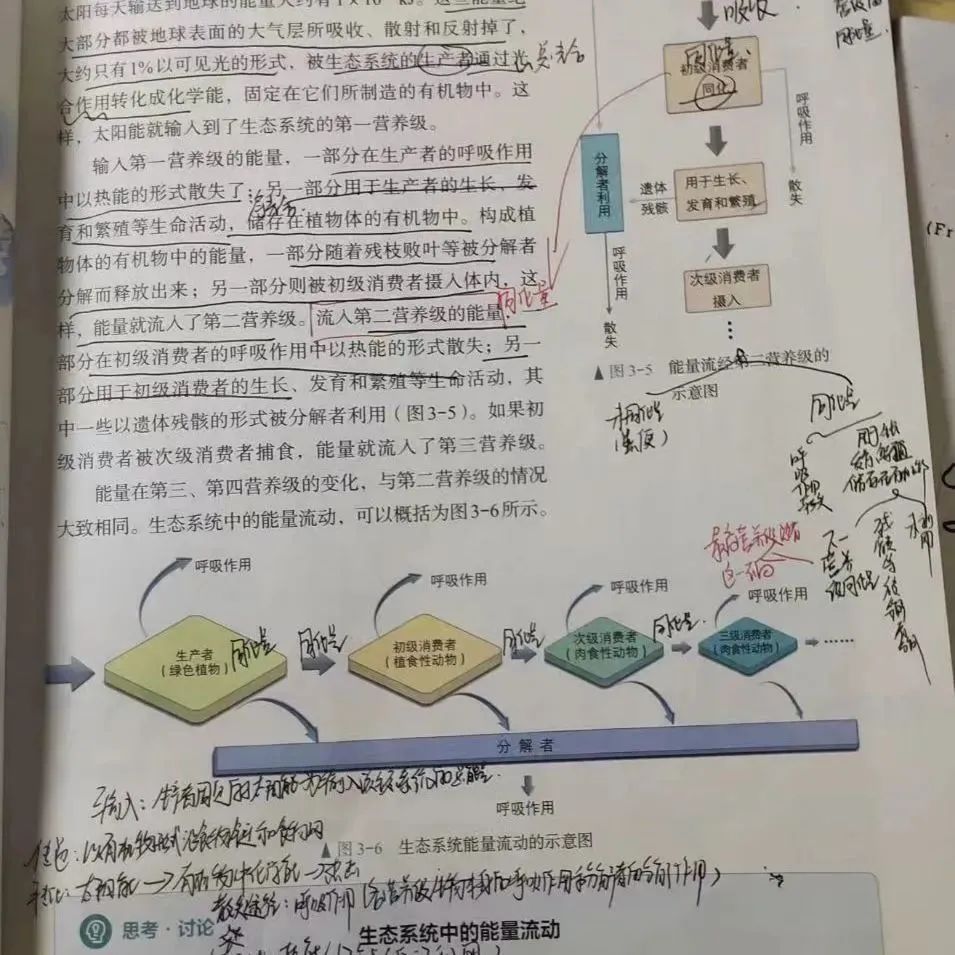 太阳每天输送到地球的能量大约有1×10
大部分都被地球表面的大气层所吸收、散射和反射掉了,
大约只有1%以可见光的形式,被生态系统的生产者通过光
合作用转化成化学能,固定在它们所制造的有机物中。这
样,太阳能就输入到了生态系统的第一营养级。
输入第一营养级的能量,一部分在生产者的呼吸作用
中以热能的形式散失了;另一部分用于生产者的生长、发
育和繁殖等生命活动,储存在植物体的有机物中。构成植
物体的有机物中的能量,一部分随着残枝败叶等被分解者
分解而释放出来;另一部分则被初级消费者摄入体内,这
样,能量就流入了第二营养级。流入第二营养级的能量,
部分在初级消费者的呼吸作用中以热能的形式散失;另一
部分用于初级消费者的生长、发育和繁殖等生命活动,其
中一些以遗体残骸的形式被分解者利用(图3-5)。如果初
级消费者被次级消费者捕食,能量就流入了第三营养级。
能量在第三、第四营养级的变化,与第二营养级的情况
大致相同。生态系统中的能量流动,可以概括为图3-6所示。
同化量
吸收
同化量
初级消费者
同化
呼吸作用
散失
分解者利用
遗体
残骸
用于生长、
发育和繁殖
呼吸作用
散失
次级消费者
摄入
▲ 图3-5 能量流经第二营养级的
示意图
未同化量
(粪便)
同化量
呼吸作用
呼吸作用
呼吸作用
呼吸作用
呼吸作用
生产者
(绿色植物)
同化量
同化量
初级消费者
(植食性动物)
同化量
次级消费者
(肉食性动物)
同化量
三级消费者
(肉食性动物)
……
分解者
呼吸作用
输入:生产者固定的太阳能为输入生态系统的总能量
以有机物形式沿食物链和食物网
▲ 图3-6 生态系统能量流动的示意图
太阳能→有机物中化学能→热能
散失途径:呼吸作用(各营养级生物本身的呼吸作用和分解者的分解作用)
思考·讨论
生态系统中的能量流动